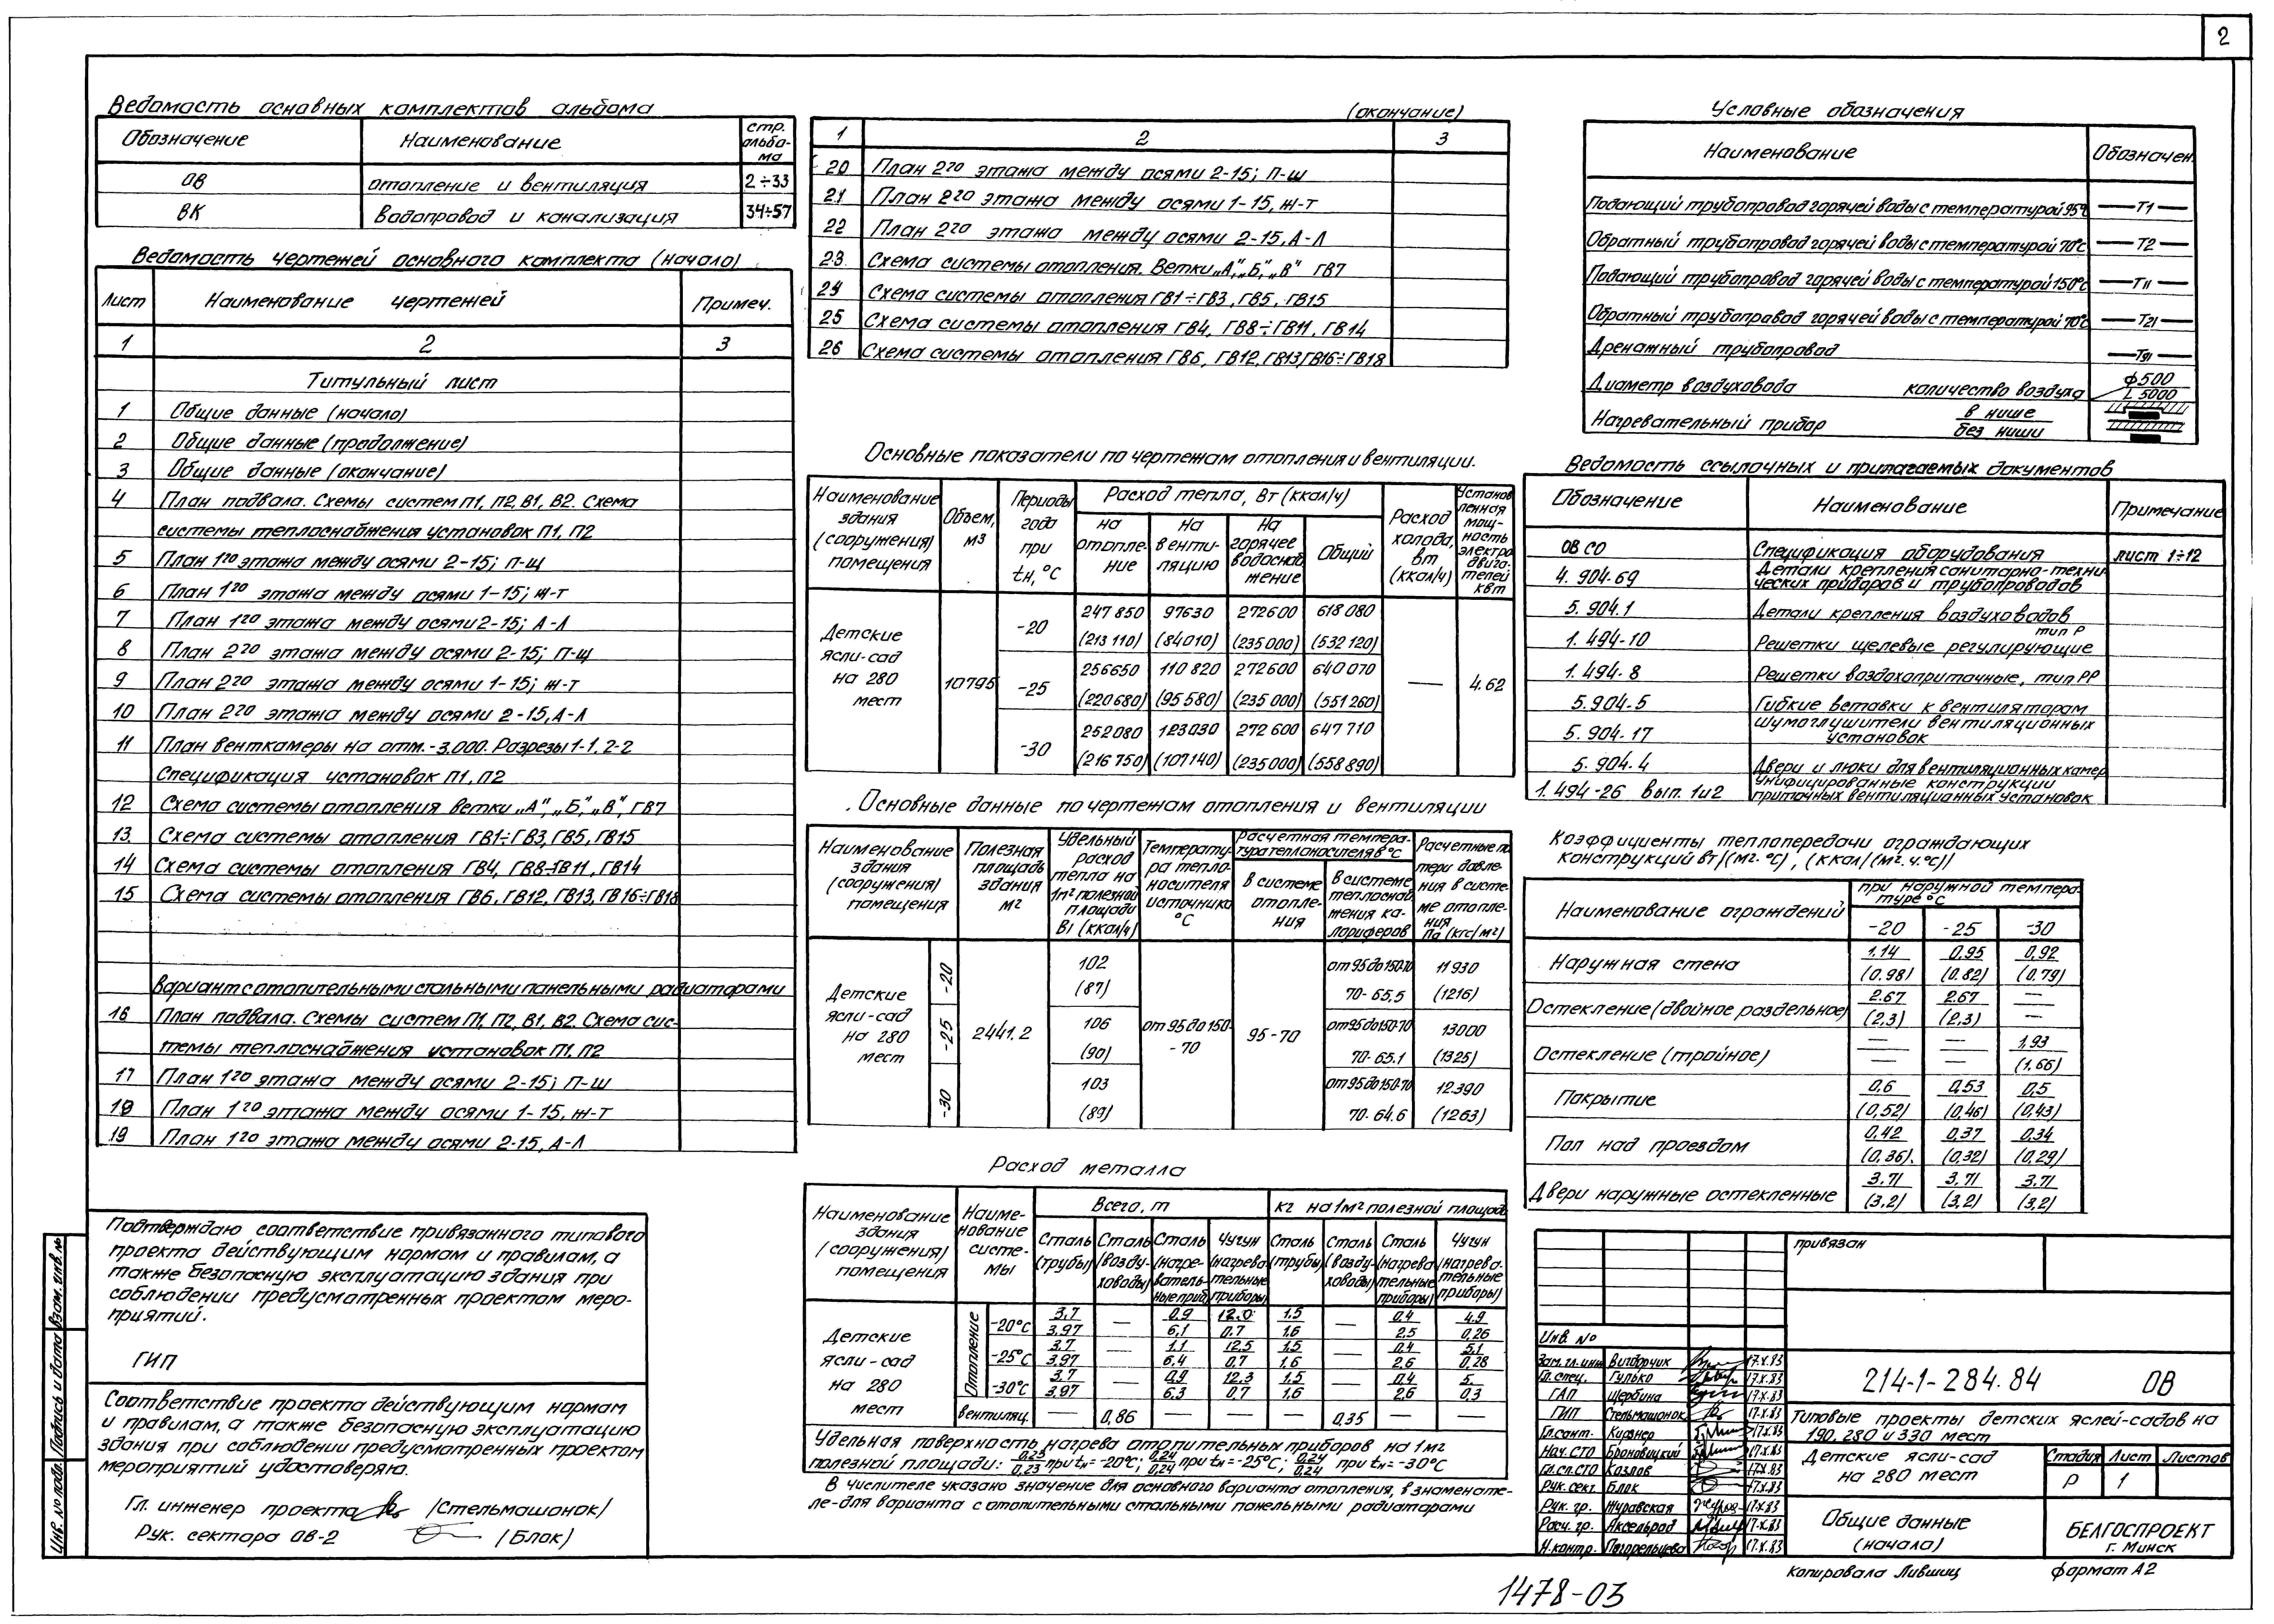 2
Ведомость основных комплектов альбома
Обозначение Наименование стр. альбо-ма
ОВ отопление и вентиляция 2÷33
ВК водопровод и канализация 34÷57
Ведомость чертежей основного комплекта (начало)
Лист Наименование чертежей Примеч.
1 2 3
Титульный лист
1 Общие данные (начало)
2 Общие данные (продолжение)
3 Общие данные (окончание)
4 План подвала. Схемы систем П1, П2, В1, В2. Схема
системы теплоснабжения установок П1, П2
5 План 1го этажа между осями 2-15; П-Щ
6 План 1го этажа между осями 1-15; Ж-Т
7 План 1го этажа между осями 2-15; А-Л
8 План 2го этажа между осями 2-15; П-Щ
9 План 2го этажа между осями 1-15; Ж-Т
10 План 2го этажа между осями 2-15, А-Л
11 План венткамеры на отм.-3.000. Разрезы 1-1, 2-2
Спецификация установок П1, П2
12 Схема системы отопления ветки „А", „Б", „В", ГВ7
13. Схема системы отопления ГВ1÷ГВ3, ГВ5, ГВ15
14 Схема системы отопления ГВ4, ГВ8÷ГВ11, ГВ14
15 Схема системы отопления ГВ6, ГВ12, ГВ13, ГВ16÷ГВ18
Вариант с отопительными стальными панельными радиаторами
16 План подвала. Схемы систем П1, П2, В1, В2. Схема сис-
темы теплоснабжения установок П1, П2
17 План 1го этажа между осями 2-15; П-Ш
18 План 1го этажа между осями 1-15, Ж-Т
19 План 1го этажа между осями 2-15, А-Л
Подтверждаю соответствие привязанного типового
проекта действующим нормам и правилам, а
также безопасную эксплуатацию здания при
соблюдении предусмотренных проектом меро-
приятий.
ГИП
Соответствие проекта действующим нормам
и правилам, а также безопасную эксплуатацию
здания при соблюдении предусмотренных проектом
мероприятий удостоверяю.
Гл. инженер проекта /Стельмашонок/
Рук. сектора ОВ-2 /Блок/
Инв. № подл. Подпись и дата Взам. инв. №
(окончание)
1 2 3
20 План 2го этажа между осями 2-15; П-Ш
21 План 2го этажа между осями 1-15, Ж-Т
22 План 2го этажа между осями 2-15, А-Л
23 Схема системы отопления. Ветки „А", „Б", „В" ГВ7
24 Схема системы отопления ГВ1÷ГВ3, ГВ5, ГВ15
25 Схема системы отопления ГВ4, ГВ8÷ГВ11, ГВ14
26 Схема системы отопления ГВ6, ГВ12, ГВ13, ГВ16÷ГВ18
Основные показатели по чертежам отопления и вентиляции.
Наименование здания (сооружения) помещения
Объем, м3
Периоды года при tн, °С
Расход тепла, Вт (ккал/ч)
на отопле-ние
на венти-ляцию
на горячее водоснаб-жение
Общий
Расход холода, вт (ккал/ч)
Установ-ленная мощ-ность электро-двига-телей квт
Детские ясли-сад на 280 мест
10795
-20 247 850 97630 272600 618 080
(213 110) (84010) (235 000) (532 120)
-25 256650 110 820 272600 640 070 — 4.62
(220 680) (95 580) (235 000) (551 260)
-30 252080 123030 272 600 647 710
(216 750) (107140) (235 000) (558 890)
Основные данные по чертежам отопления и вентиляции
Наименование здания (сооружения) помещения
Полезная площадь здания м2
Удельный расход тепла на 1м2 полезной площади Вт (ккал/ч)
Температу-ра тепло-носителя источника °С
Расчетная темпера-тура теплоносителя в °С
в системе отопле-ния
в системе теплоснаб-жения ка-лориферов
Расчетные по-тери давле-ния в систе-ме отопле-ния Па (кгс/м2)
Детские ясли-сад на 280 мест
2441.2 от 95 до 150-70 95-70
-20 102 (87) от 95 до 150-70 70-65,5 11930 (1216)
-25 106 (90) от 95 до 150-70 70-65.1 13000 (1325)
-30 103 (89) от 95 до 150-70 70-64.6 12390 (1263)
Расход металла
Наименование здания (сооружения) помещения
Наиме-нование систе-мы
Всего, т
кг на 1м2 полезной площади
Сталь (трубы) Сталь (возду-ховоды) Сталь (нагре-ватель-ные приб.) Чугун (нагрева-тельные приборы)
Сталь (трубы) Сталь (возду-ховоды) Сталь (нагрева-тельные приборы) Чугун (нагрева-тельные приборы)
Детские ясли-сад на 280 мест
Отопление
-20°С 3.7 — 0.9 12.0 1.5 — 0.4 4.9
3.97 6,1 0.7 1.6 2.5 0,26
-25°С 3.7 — 1.1 12.5 1.5 — 0.4 5.1
3.97 6.4 0.7 1.6 2.6 0,28
-30°С 3.7 — 0.9 12.3 1.5 — 0.4 5.
3.97 6.3 0.7 1.6 2.6 0.3
вентиляц. — 0,86 — — — 0,35 — —
Удельная поверхность нагрева отопительных приборов на 1м2
полезной площади: 0,23/0.23 при tн = -20°С; 0.24/0.24 при tн = -25°С; 0.24/0.24 при tн = -30°С
В числителе указано значение для основного варианта отопления, в знаменате-
ле-для варианта с отопительными стальными панельными радиаторами
Условные обозначения
Наименование Обозначен.
Подающий трубопровод горячей воды с температурой 95°С —Т1—
Обратный трубопровод горячей воды с температурой 70°С —Т2—
Подающий трубопровод горячей воды с температурой 150°С —Т11—
Обратный трубопровод горячей воды с температурой 70°С —Т21—
Дренажный трубопровод —Т91—
Диаметр воздуховода количество воздуха ф500 L 5000
Нагревательный прибор в нише
без ниши
Ведомость ссылочных и прилагаемых документов
Обозначение Наименование Примечание
ОВ СО Спецификация оборудования лист 1÷12
4. 904-69 Детали крепления санитарно-техни-
ческих приборов и трубопроводов
5. 904.1 Детали крепления воздуховодов
1. 494-10 Решетки щелевые регулирующие тип Р
1. 494-8 Решетки воздухоприточные, тип РР
5. 904-5 Гибкие вставки к вентиляторам
5. 904-17 Шумоглушители вентиляционных
установок
5. 904-4 Двери и люки для вентиляционных камер
1. 494-26 Вып. 1и2 Унифицированные конструкции
приточных вентиляционных установок
Коэффициенты теплопередачи ограждающих
конструкций Вт/(м2.°С), (ккал/(м2.ч.°С))
Наименование ограждений при наружной темпера-туре °С
-20 -25 -30
Наружная стена 1.14 0.95 0,92
(0.98) (0.82) (0.79)
Остекление (двойное раздельное) 2.67 2.67 —
(2,3) (2,3) —
Остекление (тройное) — — 1,93
— — (1,66)
Покрытие 0,6 0,53 0,5
(0,52) (0,46) (0,43)
Пол над проездом 0,42 0,37 0,34
(0,36). (0,32) (0,29)
Двери наружные остекленные 3.71 3,71 3.71
(3,2) (3,2) (3,2)
Привязан
Инв. №
Зам. гл. инж Вигдорчик 17.X.83
Гл. спец. Гулько 17.X.83
ГАП Щербина 17.X.83
ГИП Стельмашонок 17.X.83
Гл. сант. Кирзнер 17.X.83
Нач. СТО Броновицкий 17.X.83
Гл. сп. СТО Козлов 17.X.83
Рук. сект Блок 17.X.83
Рук. гр. Журавская 17.X.83
Расч. гр. Аксельрод 17.X.83
Н.контр. Погорельцева 17.X.83
214-1-284.84 ОВ
Типовые проекты детских яслей-садов на
190, 280 и 330 мест
Детские ясли-сад
на 280 мест
Стадия Лист Листов
Р 1
Общие данные
(начало)
БЕЛГОСПРОЕКТ
г. Минск
Копировала Лившиц формат А2
1478-03